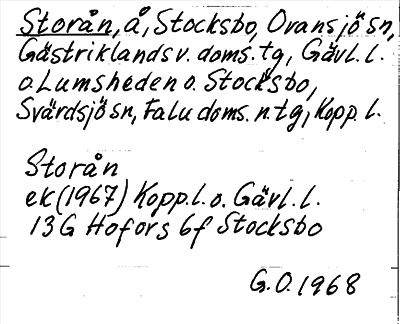 Storån, å, Stocksbo, Ovansjö sn,
Gästriklands v. doms. tg, Gävl. l.
o. Lumsheden o. Stocksbo,
Svärdsjö sn, Falu doms. n tg, Kopp. l.
Storån
ek (1967) Kopp. l. o. Gävl. l.
13G Hofors 6f Stocksbo
G.O. 1968